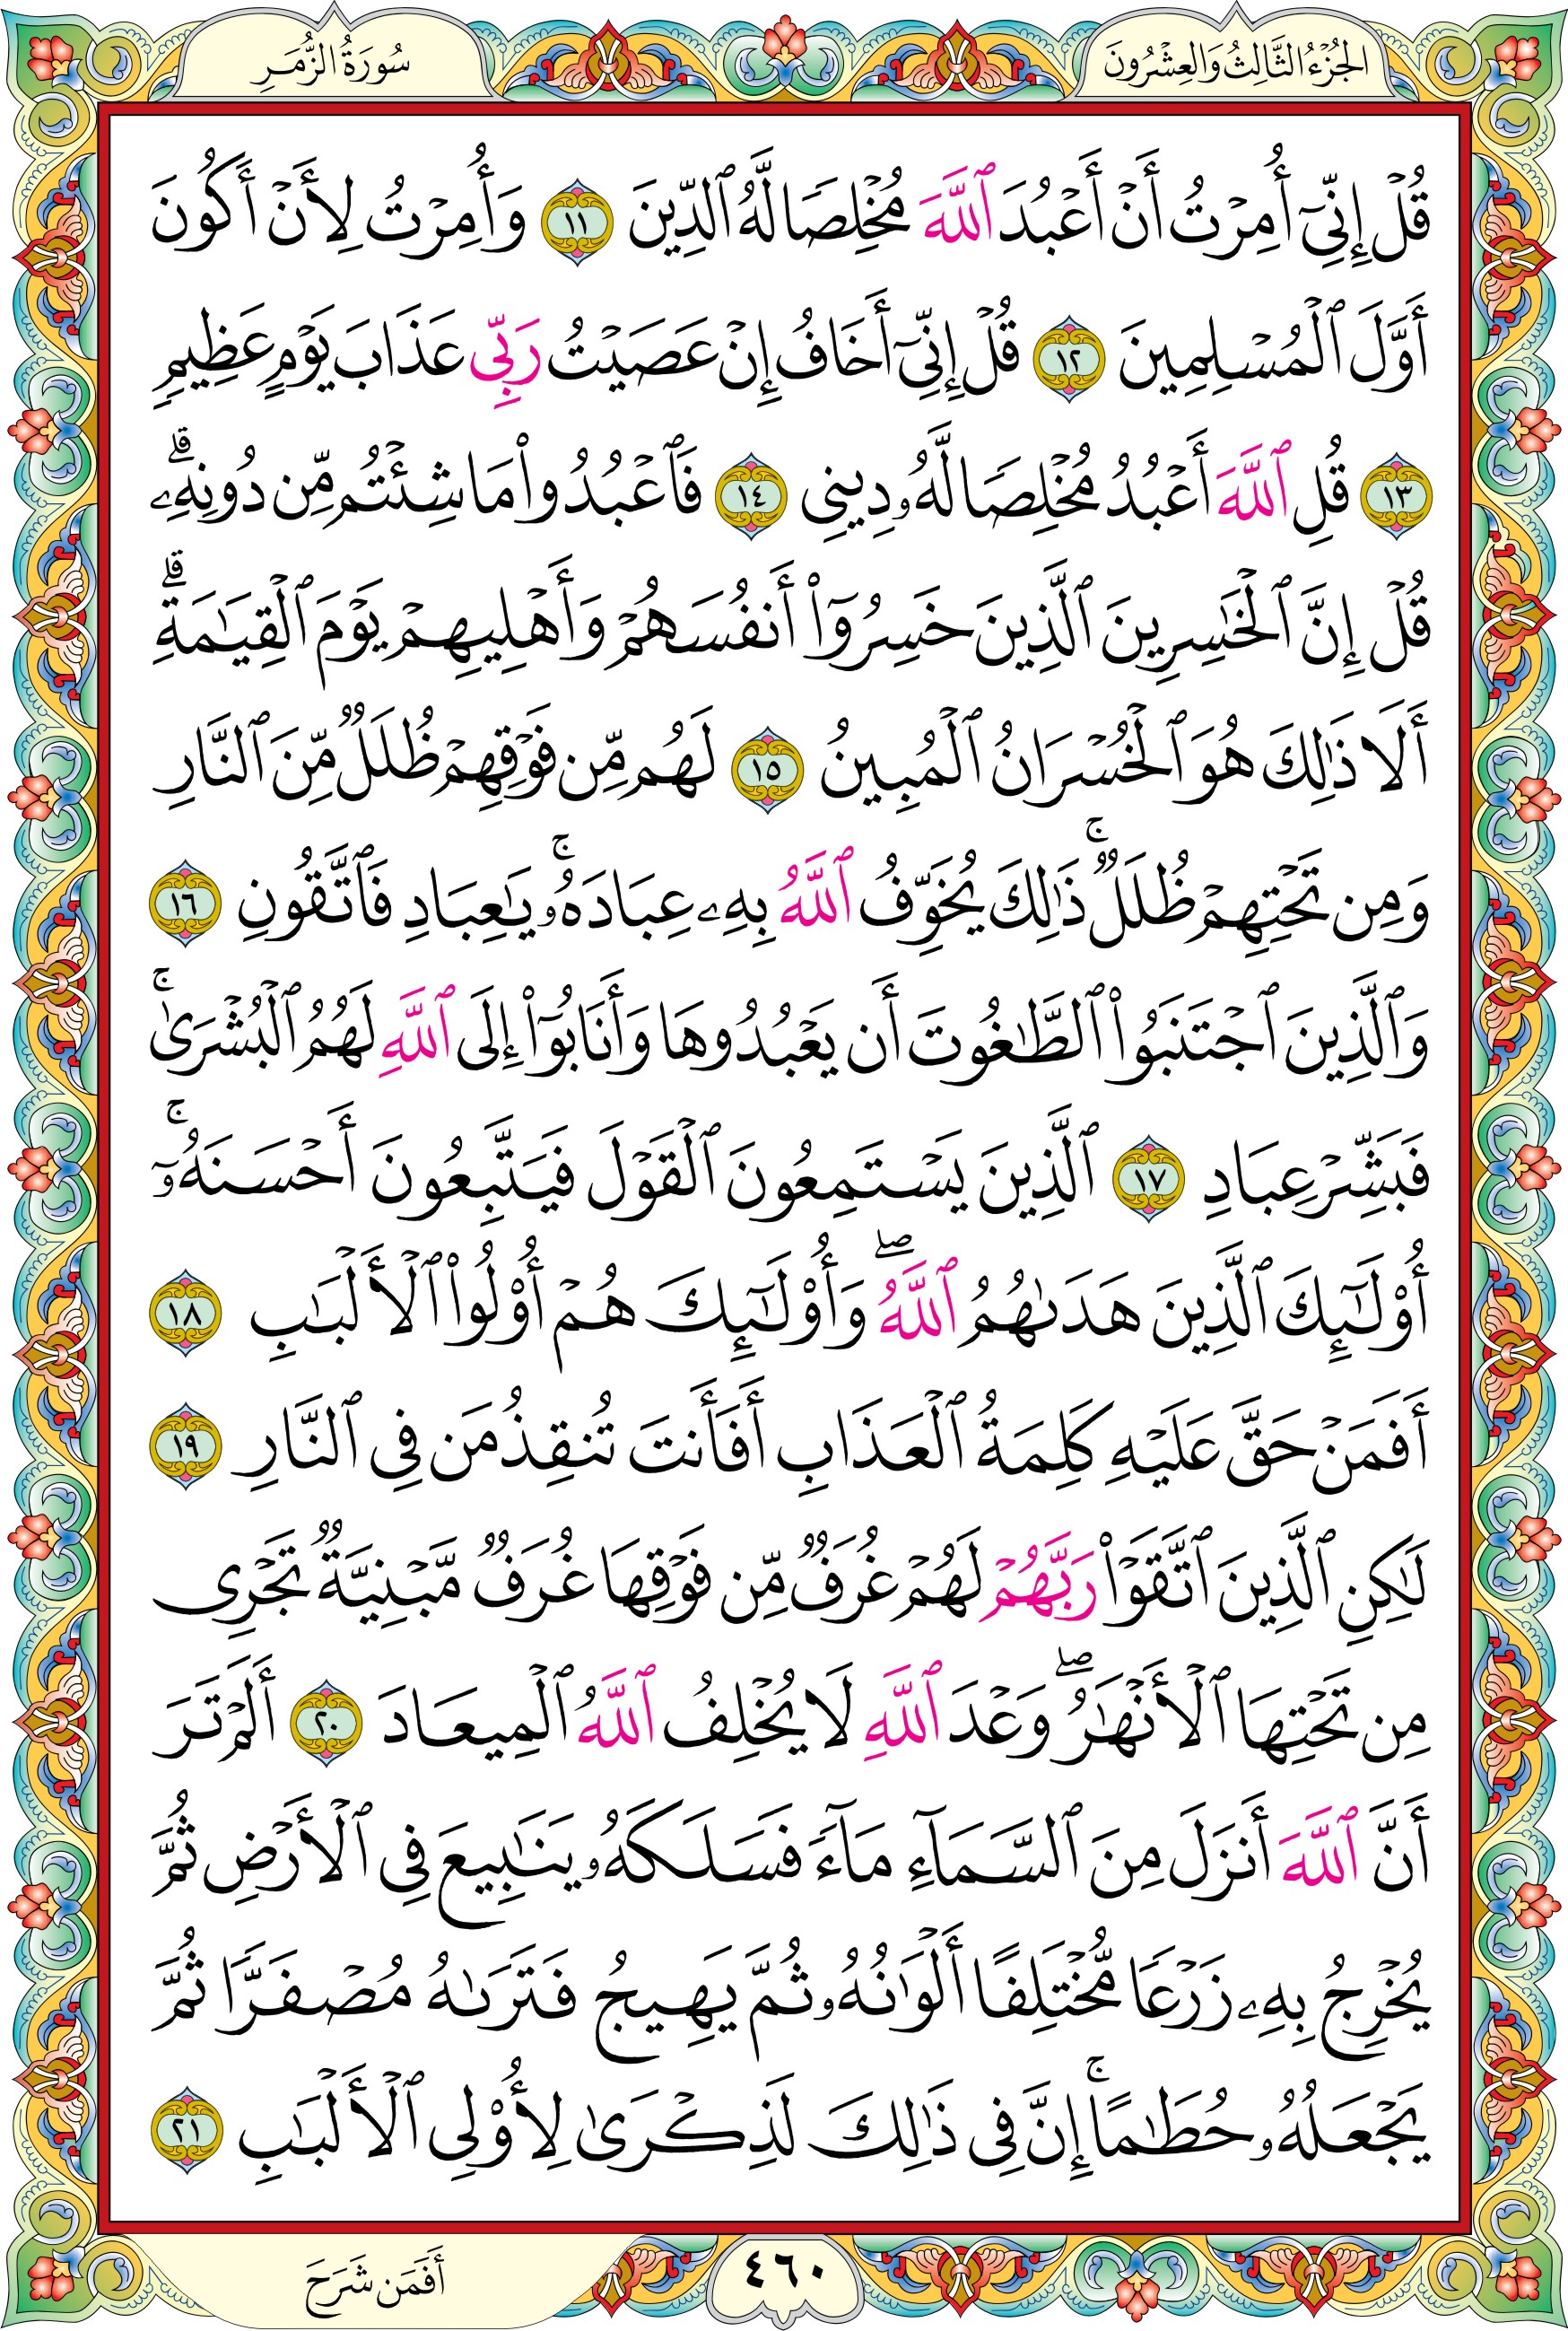 الجُزْءُ الثَّالِثُ وَالعِشْرُونَ
سُورَةُ الزُّمَرِ
قُلْ إِنِّىٓ أُمِرْتُ أَنْ أَعْبُدَ ٱللَّهَ مُخْلِصًا لَّهُ ٱلدِّينَ ١١ وَأُمِرْتُ لِأَنْ أَكُونَ
أَوَّلَ ٱلْمُسْلِمِينَ ١٢ قُلْ إِنِّىٓ أَخَافُ إِنْ عَصَيْتُ رَبِّى عَذَابَ يَوْمٍ عَظِيمٍ
١٣ قُلِ ٱللَّهَ أَعْبُدُ مُخْلِصًا لَّهُۥ دِينِى ١٤ فَٱعْبُدُوا۟ مَا شِئْتُم مِّن دُونِهِۦ ۗ
قُلْ إِنَّ ٱلْخَٰسِرِينَ ٱلَّذِينَ خَسِرُوٓا۟ أَنفُسَهُمْ وَأَهْلِيهِمْ يَوْمَ ٱلْقِيَٰمَةِ ۗ
أَلَا ذَٰلِكَ هُوَ ٱلْخُسْرَانُ ٱلْمُبِينُ ١٥ لَهُم مِّن فَوْقِهِمْ ظُلَلٌ مِّنَ ٱلنَّارِ
وَمِن تَحْتِهِمْ ظُلَلٌ ۚ ذَٰلِكَ يُخَوِّفُ ٱللَّهُ بِهِۦ عِبَادَهُۥ ۚ يَٰعِبَادِ فَٱتَّقُونِ ١٦
وَٱلَّذِينَ ٱجْتَنَبُوا۟ ٱلطَّٰغُوتَ أَن يَعْبُدُوهَا وَأَنَابُوٓا۟ إِلَى ٱللَّهِ لَهُمُ ٱلْبُشْرَىٰ ۚ
فَبَشِّرْ عِبَادِ ١٧ ٱلَّذِينَ يَسْتَمِعُونَ ٱلْقَوْلَ فَيَتَّبِعُونَ أَحْسَنَهُۥٓ ۚ
أُو۟لَٰٓئِكَ ٱلَّذِينَ هَدَىٰهُمُ ٱللَّهُ ۖ وَأُو۟لَٰٓئِكَ هُمْ أُو۟لُوا۟ ٱلْأَلْبَٰبِ ١٨
أَفَمَنْ حَقَّ عَلَيْهِ كَلِمَةُ ٱلْعَذَابِ أَفَأَنتَ تُنقِذُ مَن فِى ٱلنَّارِ ١٩
لَٰكِنِ ٱلَّذِينَ ٱتَّقَوْا۟ رَبَّهُمْ لَهُمْ غُرَفٌ مِّن فَوْقِهَا غُرَفٌ مَّبْنِيَّةٌ تَجْرِى
مِن تَحْتِهَا ٱلْأَنْهَٰرُ ۖ وَعْدَ ٱللَّهِ لَا يُخْلِفُ ٱللَّهُ ٱلْمِيعَادَ ٢٠ أَلَمْ تَرَ
أَنَّ ٱللَّهَ أَنزَلَ مِنَ ٱلسَّمَآءِ مَآءً فَسَلَكَهُۥ يَنَٰبِيعَ فِى ٱلْأَرْضِ ثُمَّ
يُخْرِجُ بِهِۦ زَرْعًا مُّخْتَلِفًا أَلْوَٰنُهُۥ ثُمَّ يَهِيجُ فَتَرَىٰهُ مُصْفَرًّا ثُمَّ
يَجْعَلُهُۥ حُطَٰمًا ۚ إِنَّ فِى ذَٰلِكَ لَذِكْرَىٰ لِأُو۟لِى ٱلْأَلْبَٰبِ ٢١
٤٦٠
أَفَمَن شَرَحَ